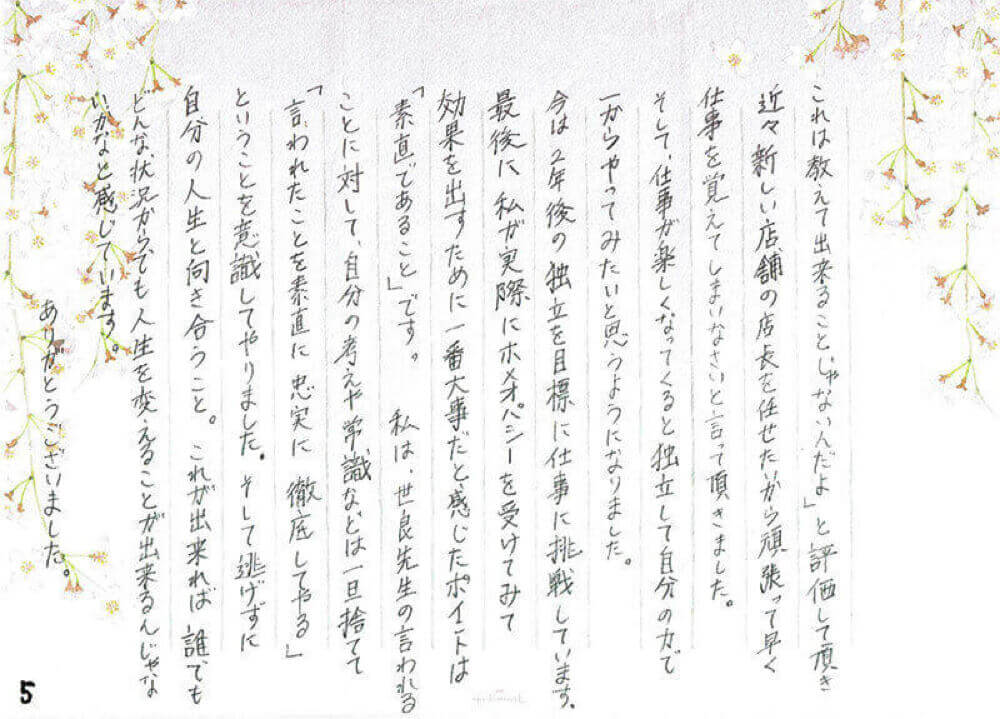 これは教えて出来ることじゃないんだよ」と評価して頂き
近々新しい店舗の店長を任せたいから頑張って早く
仕事を覚えてしまいなさいと言って頂きました。
そして、仕事が楽しくなってくると独立して自分の力で
一からやってみたいと思うようになりました。
今は2年後の独立を目標に仕事に挑戦しています。
最後に私が実際にホメオパシーを受けてみて
効果を出すために一番大事だと感じたポイントは
「素直であること」です。 私は、世良先生の言われる
ことに対して、自分の考えや常識などは一旦捨てて
「言われたことを素直に忠実に徹底してやる」
ということを意識してやりました。そして逃げずに
自分の人生と向き合うこと。これが出来れば誰でも
どんな状況からでも人生を変えることが出来るんじゃな
いかなと感じています。
ありがとうございました。
5